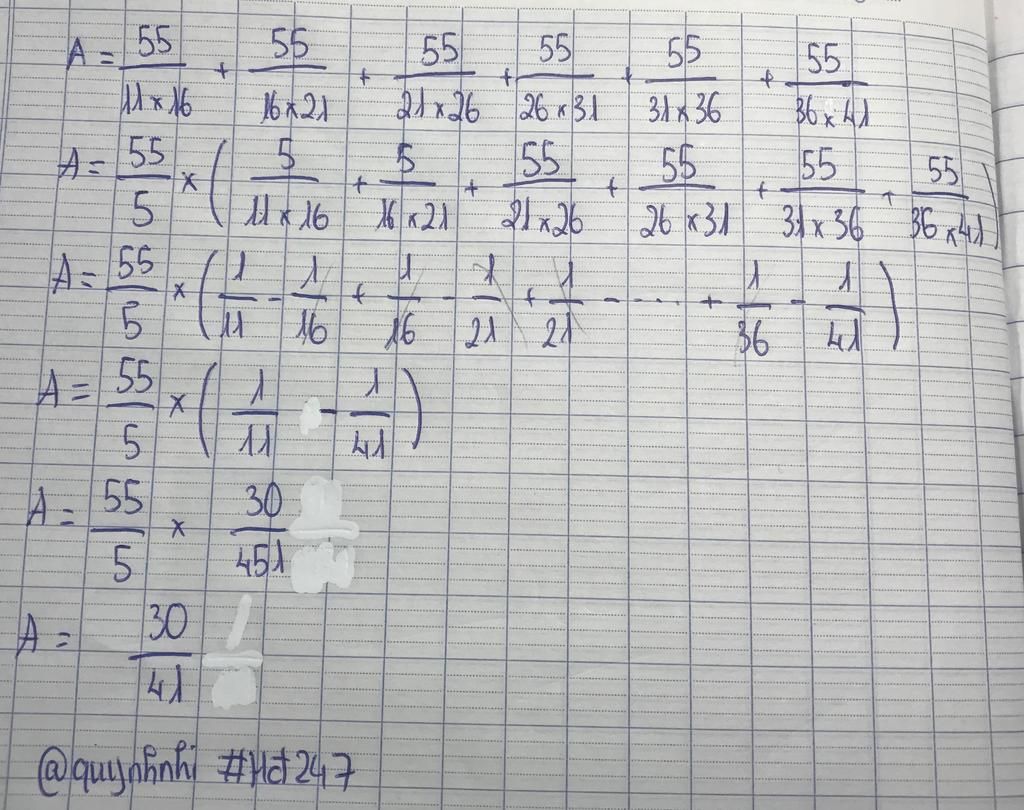 A = 55/11×16 + 55/16×21 + 55/21×26 + 55/26×31 + 55/31×36 + 55/36×41
A = 55/5 × ( 5/11×16 + 5/16×21 + 55/21×26 + 55/26×31 + 55/31×36 + 55/36×41 )
A = 55/5 × ( 1/11 - 1/16 + 1/16 - 1/21 + 1/21 - .... + 1/36 - 1/41 )
A = 55/5 × ( 1/11 - 1/41 )
A = 55/5 × 30/451
A = 30/41
@quynhnhi #Hđ247